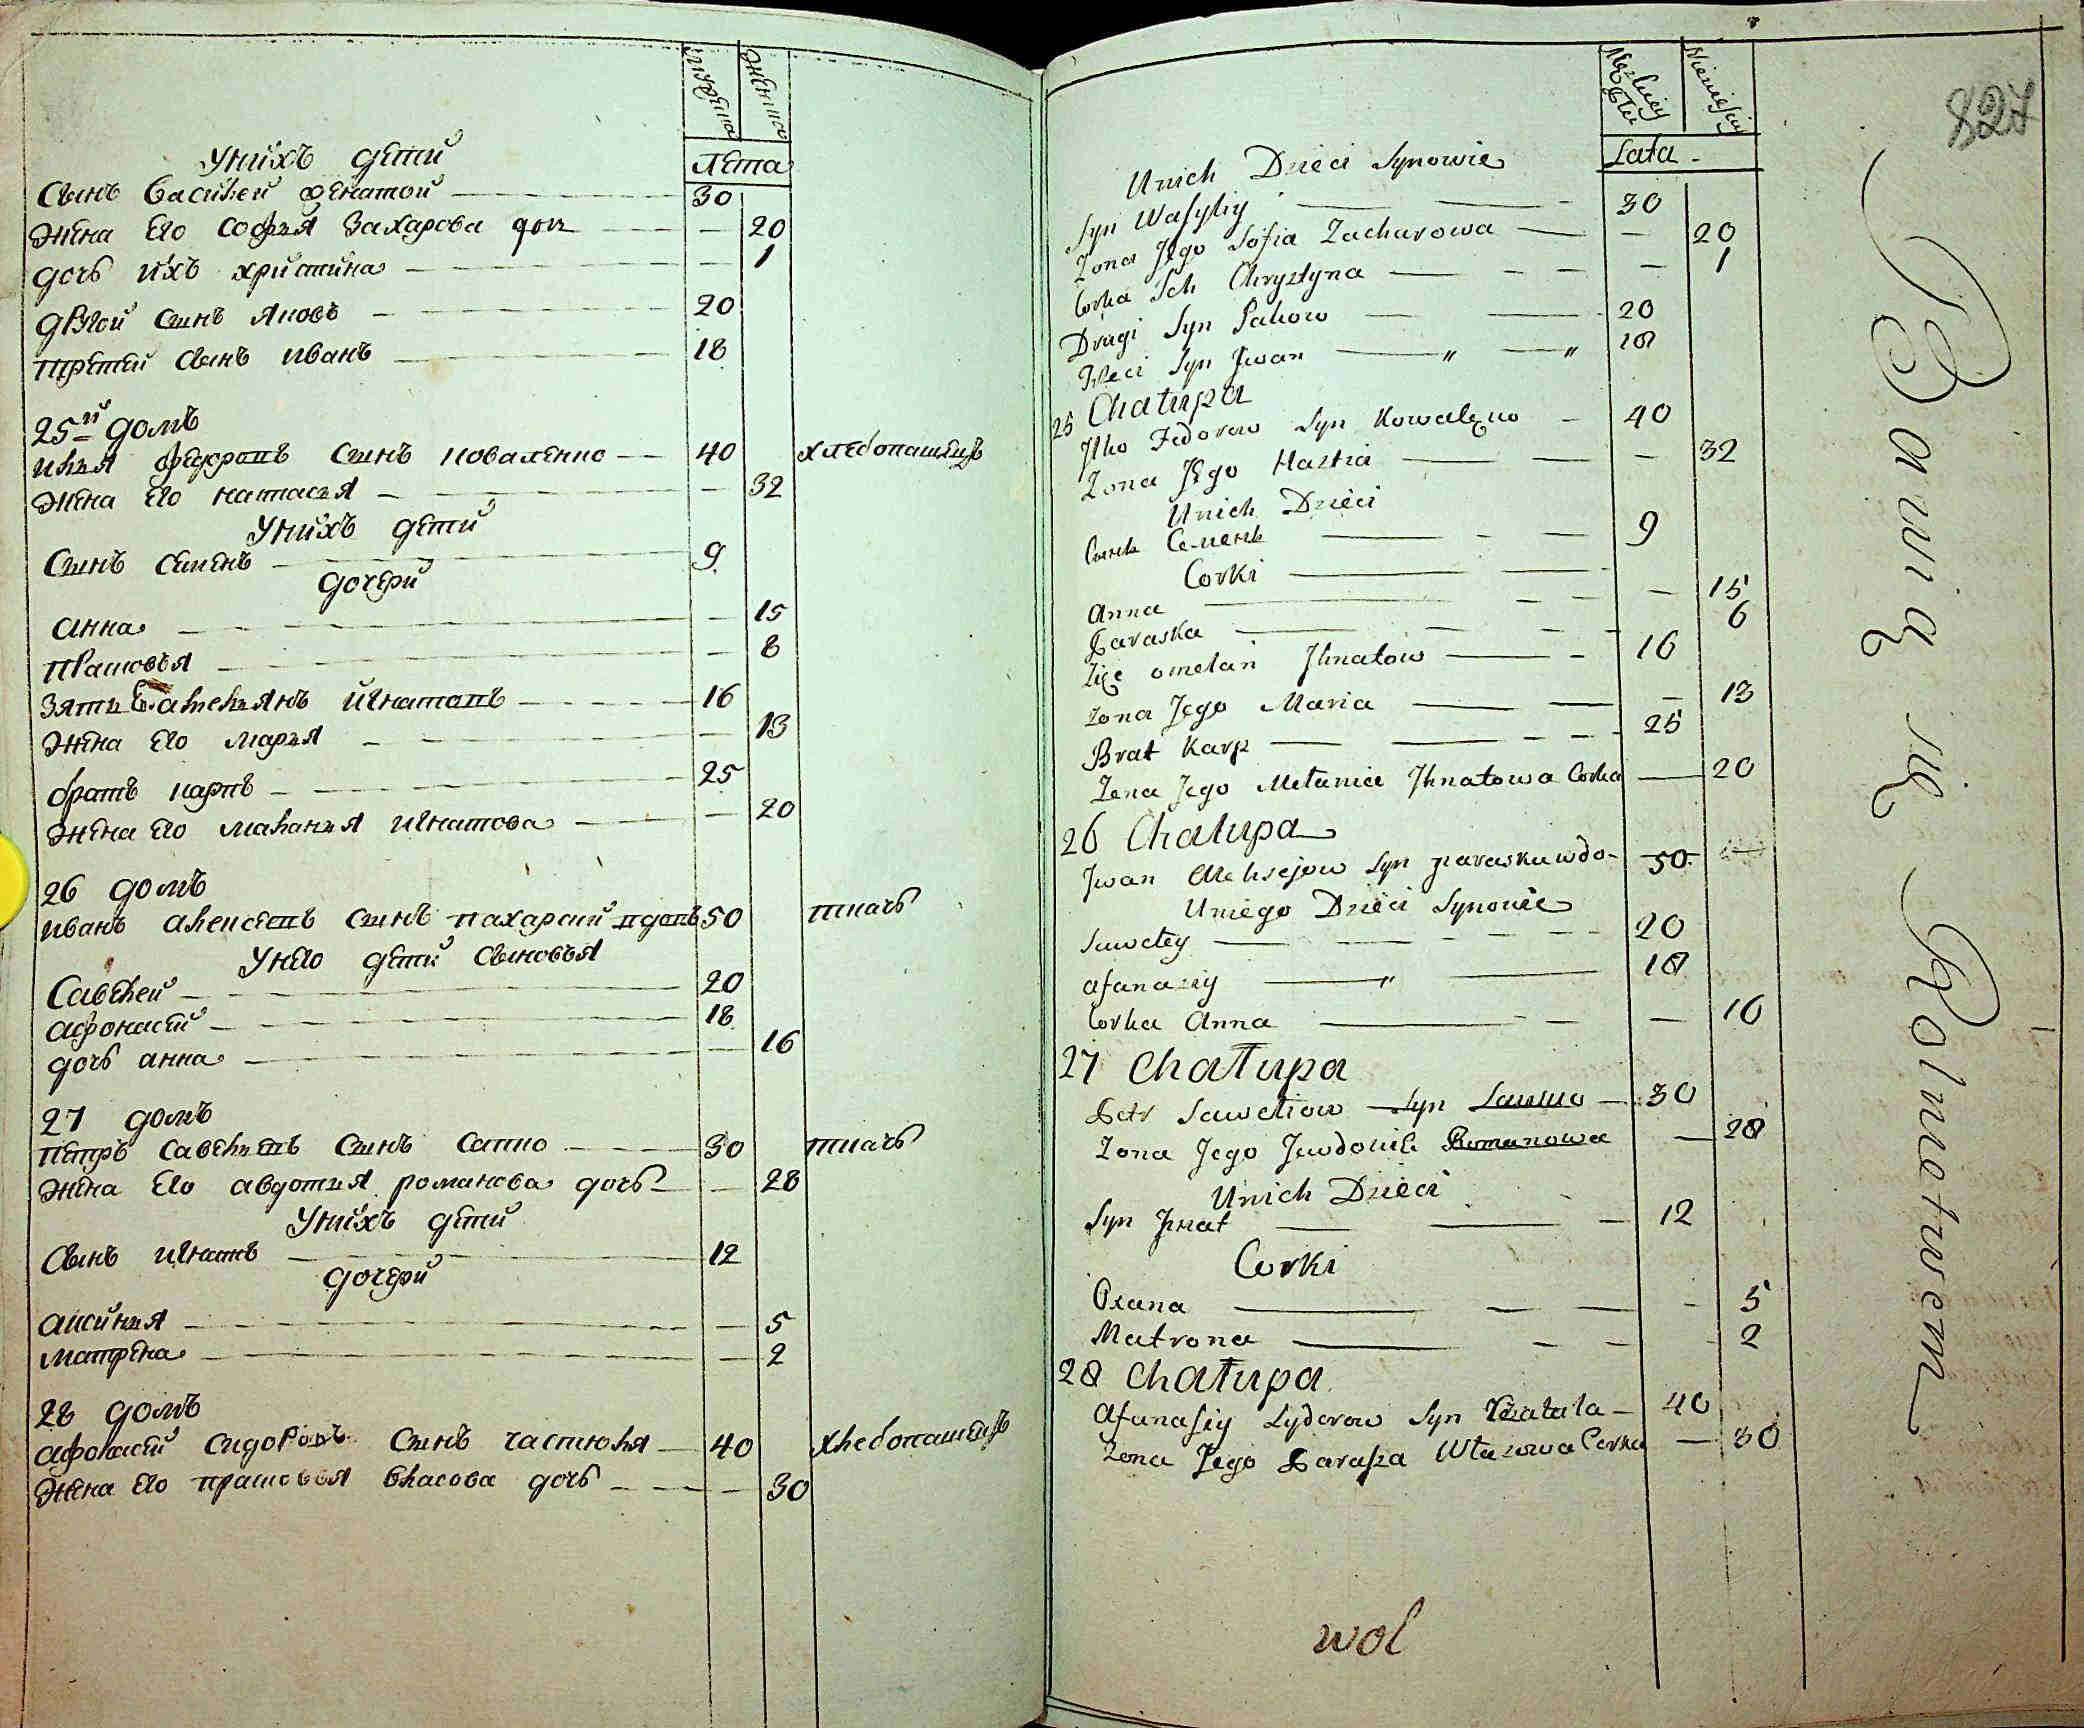 мужеска
женска
лета
У них детй
Сынъ Василей женатой 30
жена его софия Захарова доч 20
дочь ихъ христина 1
другой сынъ Яковъ 20
третей сынъ иванъ 18
25й домъ
илия федоровъ сынъ коваленко 40 хлебопашецъ
жена его настасия 32
У нихъ дети
Сынъ семенъ 9
дочери
анна 15
прасковья 8
зять игнатовъ 16
жена его мария 13
братъ карпъ 25
жена его малания игнатова 20
26 домъ
иванъ алексеевъ сынъ 50 ткачь
У него дети сыновья
Савелей 20
афонасей 18
дочь анна 16
27 домъ
петръ савельевъ сынъ сапко 30 ткачь
жена его авдотия романова дочь 28
У нихъ дети
Сынъ игнатъ 12
дочери
аксиния 5
матрена 2
28 домъ
афонасей сидоровъ сынъ 40 хлебопашецъ
жена его прасковья власова дочь 30
827
Lata
Unich Dzieci Synowie
Syn Wasyliy 30
Zona Jego Sofia Zacharowa 20
Corka Ich Chrystyna 1
Drugi Syn Jakow 20
Trzeci Syn Jwan 18
25 Chałupa
Jlko Fedorow Syn Kowalenko 40
Zona Jego Nastia 32
Unich Dzieci
Сынъ Семенъ 9
Corki
Anna 15
Paraska 6
Zięc omelan Jhnatow 16
Zona Jego Maria 13
Brat Karp 25
Zona Jego Melania Jhnatowa Corka 20
26 Chałupa
Jwan Aleksejow Syn 50
Uniego Dzieci Synowie
Saweley 20
afanaziy 18
Corka Anna 16
27 Chałupa
Petr Saweliow Syn 30
Zona Jego Jewdokia Romanowa 28
Unich Dzieci
Syn Jhnat 12
Corki
Oxana 5
Matrona 2
28 Chałupa
Afanasiy Sydorow Syn 40
Zona Jego Paraska Własowa Corka 30
wol
Bawią się Rolnictwem